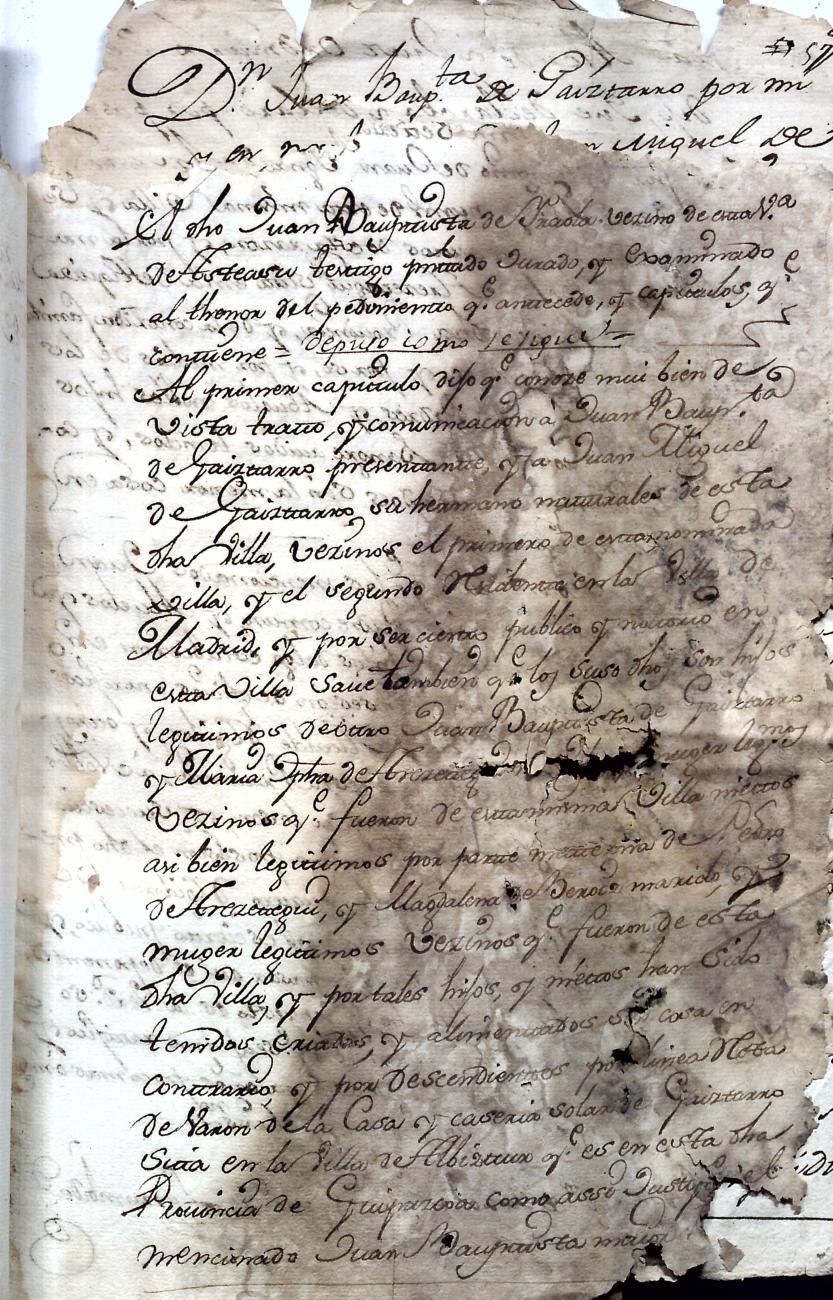 57
Dn. Juan Baupta de Gaiztarro por mi
y en Miguel de
El dho Juan Bauptista de Vezino de esta Va
de Asteasu testigo pntado Jurado, y examinado
al thenor del pedimiento qe. antecede, y capitulos, qe
contiene = depuso como se sigue =
Al primer capitulo dijo qe conoze mui bien de
vista trato, y comunicacion à Juan Baupta
de Gaiztarro presentante, y a Juan Miguel
de Gaiztarro, su hermano naturales de esta
dha Villa, vezinos el primero de esta nominada
villa, y el segundo Residente en la Villa de
Madrid, y por ser cierto publico y notorio en
esta Villa save tambien qe los suso dhos son hijos
legitimos de otro Juan Bauptista de Gaiztarro
y Maria Jpha de Arezeteg muger legmos
vezinos qe. fueron de esta misma Villa niettos
asi bien legitimos por parte materna de Pedro
de Arezetegui, y Magdalena de marido, y
muger legitimos vezinos qe. fueron de esta
dha Villa, y por tales hijos, y niettos han sido
tenidos criados, y alimentados sin cosa en
contrario, y por Descendientes por linea Recta
de Varon de la Casa y caseria solar de Gaiztarro
Sita en la Villa de Albiztur qe. es en esta dha
Provincia de Guipuzcoa como asso el
mencionado Juan Bauptista maior